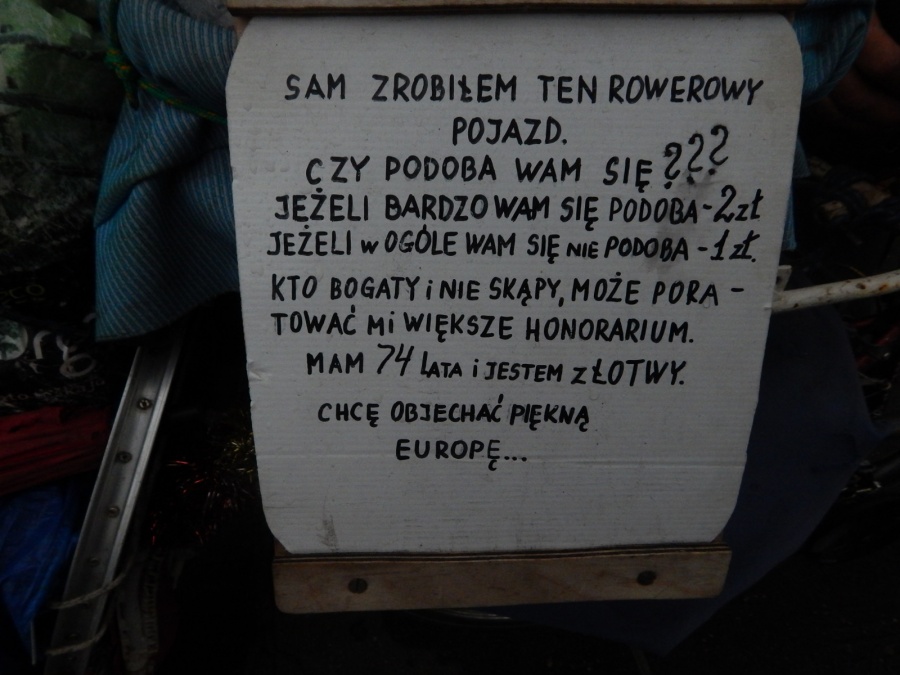 SAM ZROBIŁEM TEN ROWEROWY
POJAZD.
CZY PODOBA WAM SIĘ???
JEŻELI BARDZO WAM SIĘ PODOBA-2zł
JEŻELI w OGÓLE WAM SIĘ NIE PODOBA -1zł.
KTO BOGATY i NIE SKĄPY, MOŻE PORA-
TOWAĆ Mi WIĘKSZE HONORARIUM.
MAM 74 LATA i JESTEM z ŁOTWY.
CHCĘ OBJECHAĆ PIĘKNĄ
EUROPĘ...